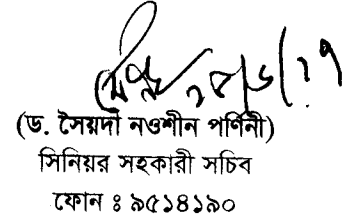 ১৮/৬/১৭
(ড. সৈয়দা নওশীন পর্ণিনী)
সিনিয়র সহকারী সচিব
ফোন ঃ ৯৫১৪১৯০